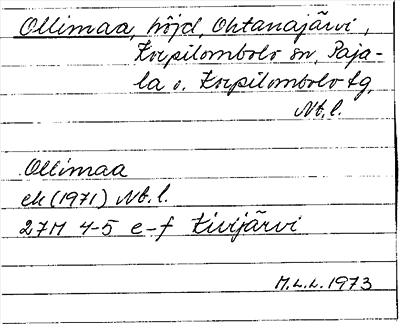 Ollimaa, höjd, Ohtanajärvi,
Korpilombolo sn, Paja-
la o. Korpilombolo tg,
Nb. l.
Ollimaa
ek (1971) Nb. l.
27M 4-5 e-f Kivijärvi
M.L.L. 1973